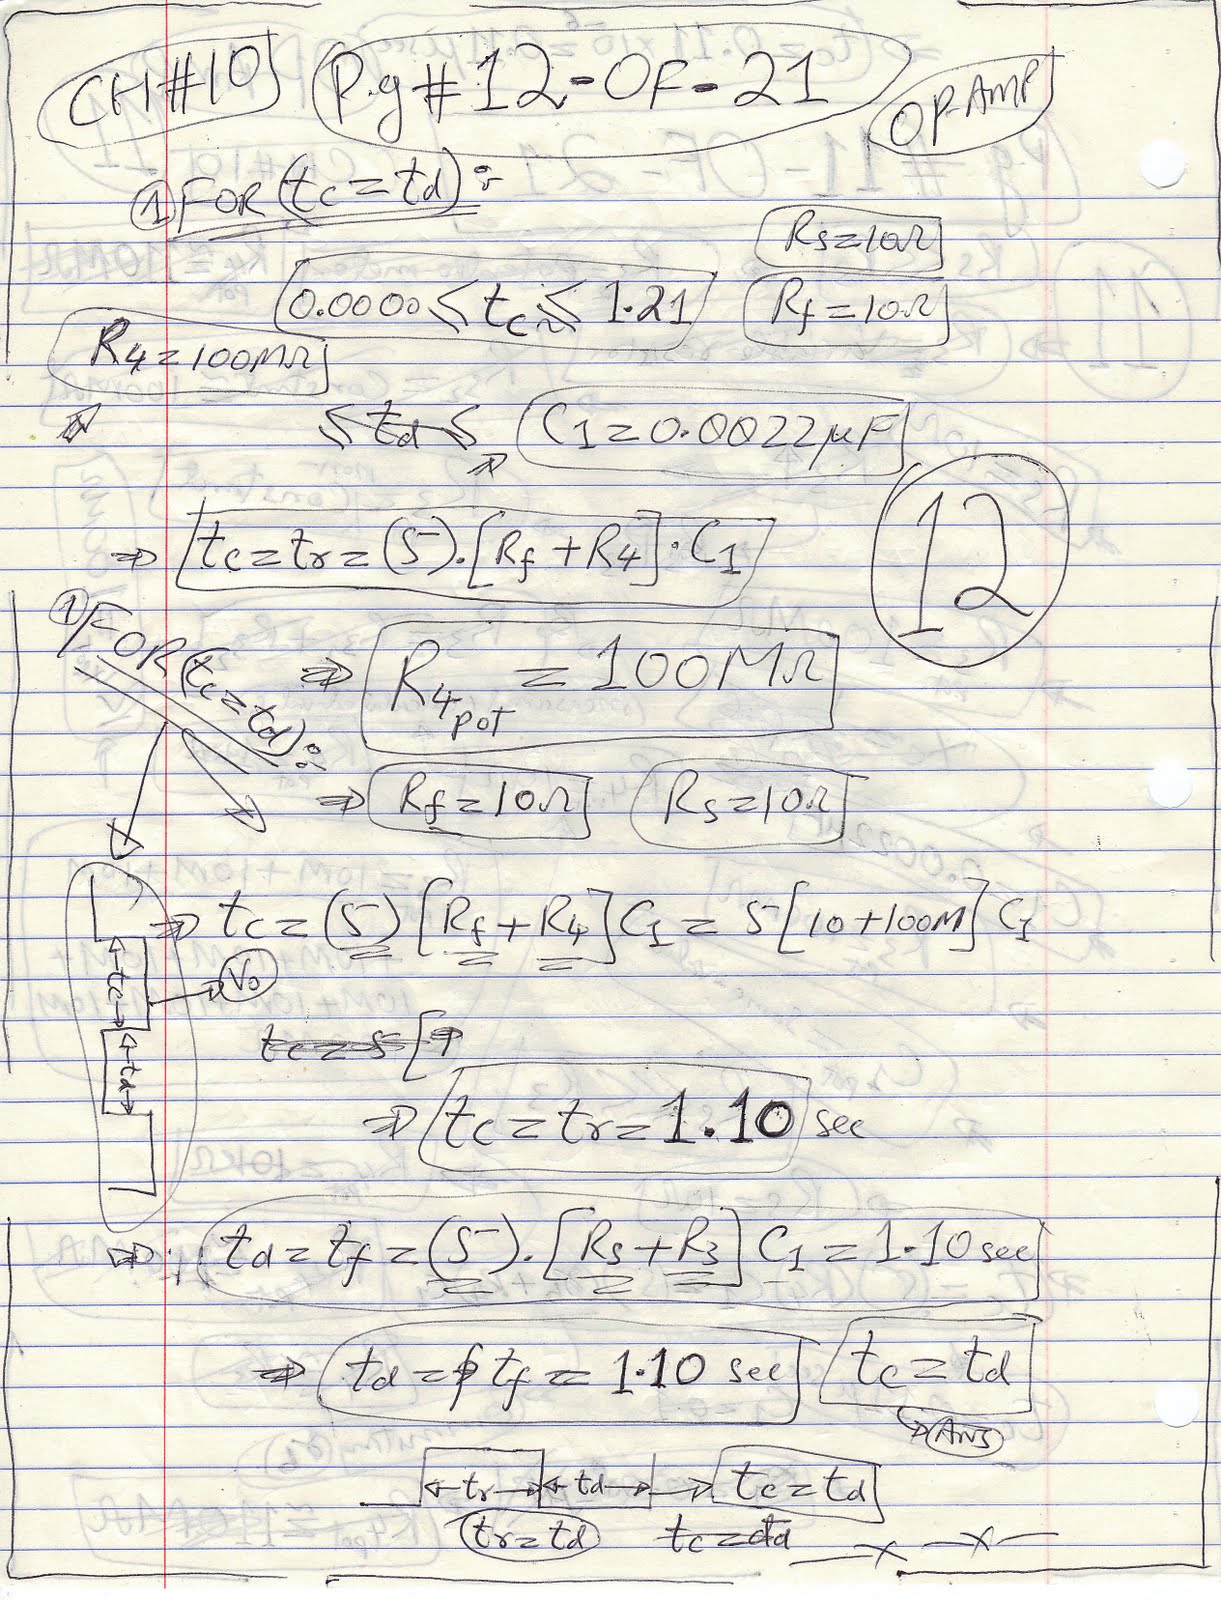 CH#10 Pg#12-OF-21 OPAMP
① FOR (tc=td):
Rs=10Ω
0.0000 ≤ tc ≤ 1.21 Rf=10Ω
R4=100MΩ
≤ td ≤ C1=0.0022μF
⇒ tc=tr=(5).[Rf+R4].C1
12
① FOR (tc=td):
⇒ R4pot = 100MΩ
⇒ Rf=10Ω Rs=10Ω
⇒ tc=(5)[Rf+R4]C1=5[10+100M]C1
tc
Vo
td
tc=5[
⇒ tc=tr=1.10 sec
⇒ td=tf=(5).[Rs+R3]C1=1.10sec
⇒ td=tf=1.10 sec tc=td
ANS
tr td → tc=td
tr=td tc=td
—x—x—